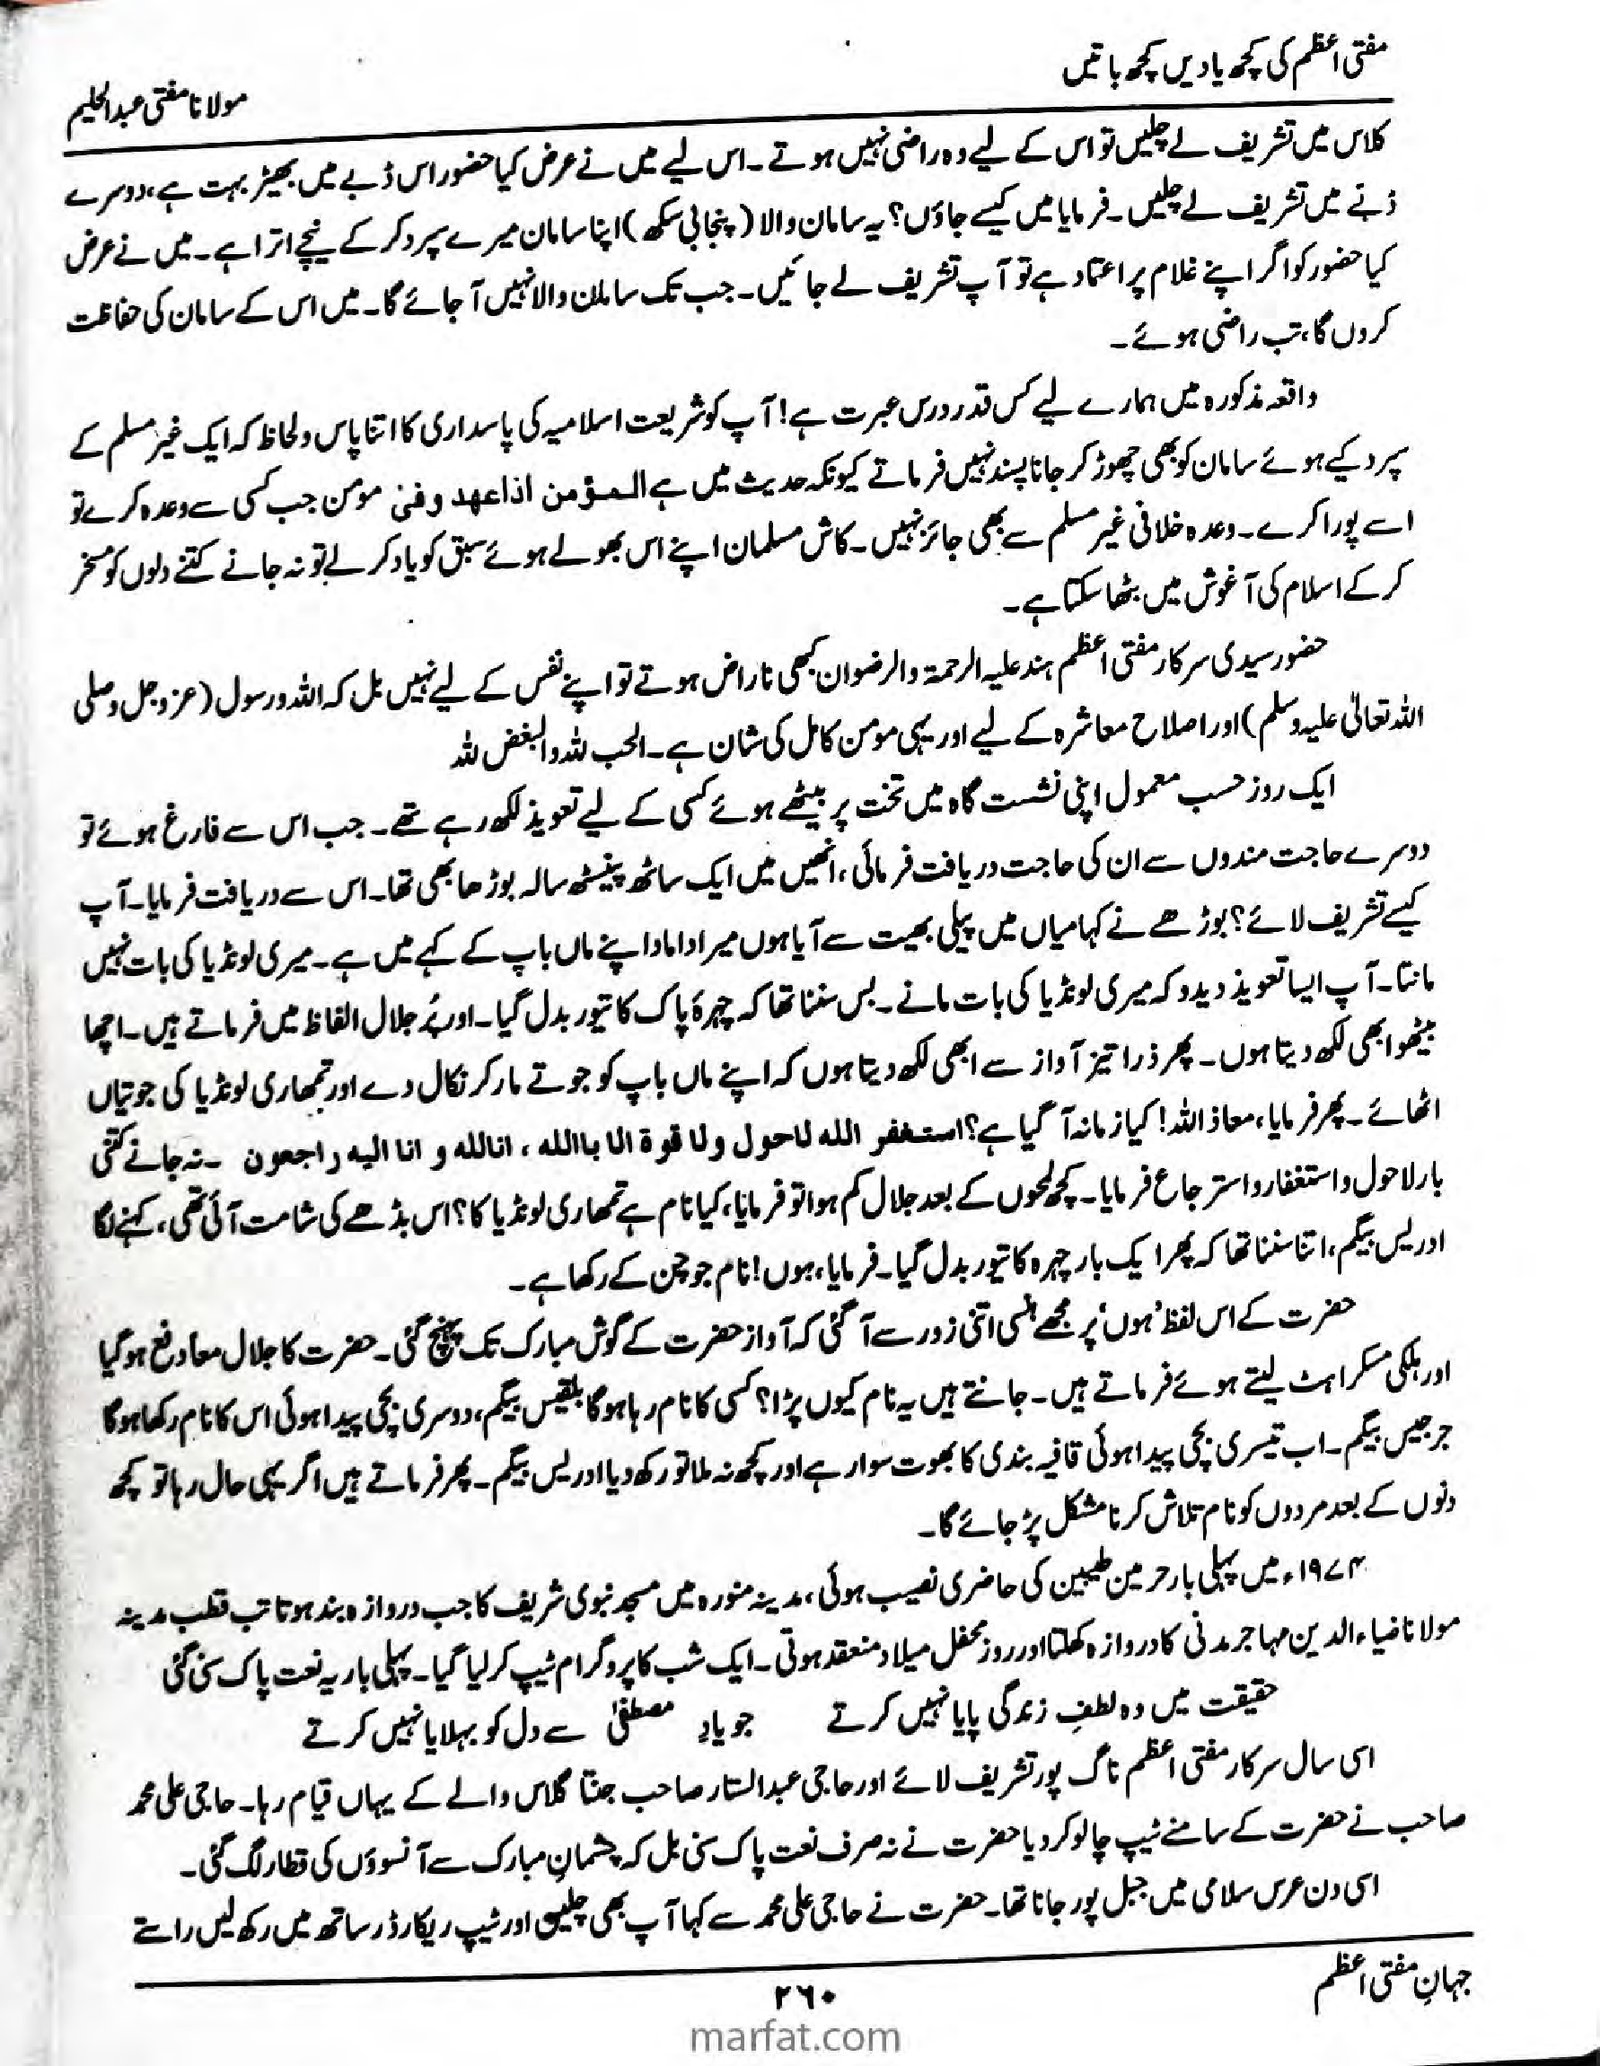 مفتی اعظم کی کچھ یادیں کچھ باتیں
مولانا مفتی عبدالحلیم
کلاس میں تشریف لے چلیں تو اس کے لیے وہ راضی نہیں ہوتے۔ اس لیے میں نے عرض کیا حضور اس ڈبے میں بھیڑ بہت ہے، دوسرے
ڈبے میں تشریف لے چلیں۔ فرمایا میں کیسے جاؤں؟ یہ سامان والا (پنجابی سکھ) اپنا سامان میرے سپرد کر کے نیچے اترا ہے۔ میں نے عرض
کیا حضور کو اگر اپنے غلام پر اعتماد ہے تو آپ تشریف لے جائیں۔ جب تک سامان والا نہیں آ جائے گا۔ میں اس کے سامان کی حفاظت
کروں گا، تب راضی ہوئے۔
واقعہ مذکورہ میں ہمارے لیے کس قدر درس عبرت ہے! آپ کو شریعت اسلامیہ کی پاسداری کا اتنا پاس و لحاظ کہ ایک غیر مسلم کے
سپرد کیے ہوئے سامان کو بھی چھوڑ کر جانا پسند نہیں فرماتے کیونکہ حدیث میں ہے المؤمن اذا عهد وفیٰ مومن جب کسی سے وعدہ کرے تو
اسے پورا کرے۔ وعدہ خلافی غیر مسلم سے بھی جائز نہیں۔ کاش مسلمان اپنے اس بھولے ہوئے سبق کو یاد کر لے تو نہ جانے کتنے دلوں کو مسخر
کر کے اسلام کی آغوش میں بٹھا سکتا ہے۔
حضور سیدی سرکار مفتی اعظم ہند علیہ الرحمۃ والرضوان کبھی ناراض ہوتے تو اپنے نفس کے لیے نہیں بل کہ اللہ و رسول (عزوجل و صلی
اللہ تعالیٰ علیہ وسلم) اور اصلاح معاشرہ کے لیے اور یہی مومن کامل کی شان ہے۔ الحب للہ والبغض للہ
ایک روز حسب معمول اپنی نشست گاہ میں تخت پر بیٹھے ہوئے کسی کے لیے تعویذ لکھ رہے تھے۔ جب اس سے فارغ ہوئے تو
دوسرے حاجت مندوں سے ان کی حاجت دریافت فرمائی، انھیں میں ایک ساٹھ پینسٹھ سالہ بوڑھا بھی تھا۔ اس سے دریافت فرمایا۔ آپ
کیسے تشریف لائے؟ بوڑھے نے کہا میاں میں پیلی بھیت سے آیا ہوں میرا داماد اپنے ماں باپ کے کہے میں ہے۔ میری لونڈیا کی بات نہیں
مانتا۔ آپ ایسا تعویذ دیدو کہ میری لونڈیا کی بات مانے۔ بس سننا تھا کہ چہرۂ پاک کا تیور بدل گیا۔ اور پُر جلال الفاظ میں فرماتے ہیں۔ اچھا
بیٹھو ابھی لکھ دیتا ہوں۔ پھر ذرا تیز آواز سے ابھی لکھ دیتا ہوں کہ اپنے ماں باپ کو جوتے مار کر نکال دے اور تمھاری لونڈیا کی جوتیاں
اٹھائے۔ پھر فرمایا، معاذ اللہ! کیا زمانہ آ گیا ہے؟ استغفر الله لاحول ولا قوة الا باالله، انالله و انا اليه راجعون ۔ نہ جانے کتنی
بار لاحول و استغفار و استرجاع فرمایا۔ کچھ لمحوں کے بعد جلال کم ہوا تو فرمایا، کیا نام ہے تمھاری لونڈیا کا؟ اس بڈھے کی شامت آئی تھی، کہنے لگا
ادریس بیگم، اتنا سننا تھا کہ پھر ایک بار چہرہ کا تیور بدل گیا۔ فرمایا، ہوں! نام جو چن کے رکھا ہے۔
حضرت کے اس لفظ 'ہوں' پر مجھے ہنسی اتنی زور سے آ گئی کہ آواز حضرت کے گوش مبارک تک پہنچ گئی۔ حضرت کا جلال معاً دفع ہو گیا
اور ہلکی مسکراہٹ لیتے ہوئے فرماتے ہیں۔ جانتے ہیں یہ نام کیوں پڑا؟ کسی کا نام رہا ہوگا بلقیس بیگم، دوسری بچی پیدا ہوئی اس کا نام رکھا ہوگا
جرجیس بیگم۔ اب تیسری بچی پیدا ہوئی قافیہ بندی کا بھوت سوار ہے اور کچھ نہ ملا تو رکھ دیا ادریس بیگم۔ پھر فرماتے ہیں اگر یہی حال رہا تو کچھ
دنوں کے بعد مردوں کو نام تلاش کرنا مشکل پڑ جائے گا۔
۱۹۷۴ء میں پہلی بار حرمین طیبین کی حاضری نصیب ہوئی، مدینہ منورہ میں مسجد نبوی شریف کا جب دروازہ بند ہوتا تب قطب مدینہ
مولانا ضیاء الدین مہاجر مدنی کا دروازہ کھلتا اور روز محفل میلاد منعقد ہوتی۔ ایک شب کا پروگرام ٹیپ کر لیا گیا۔ پہلی بار یہ نعت پاک سنی گئی
حقیقت میں وہ لطفِ زندگی پایا نہیں کرتے جو یادِ مصطفیٰ سے دل کو بہلایا نہیں کرتے
اسی سال سرکار مفتی اعظم ناگ پور تشریف لائے اور حاجی عبدالستار صاحب جنتا گلاس والے کے یہاں قیام رہا۔ حاجی علی محمد
صاحب نے حضرت کے سامنے ٹیپ چالو کر دیا حضرت نے نہ صرف نعت پاک سنی بل کہ چشمانِ مبارک سے آنسوؤں کی قطار لگ گئی۔
اسی دن عرس سلامی میں جبل پور جانا تھا۔ حضرت نے حاجی علی محمد سے کہا آپ بھی چلیں اور ٹیپ ریکارڈر ساتھ میں رکھ لیں راستے
جہانِ مفتی اعظم
۲۶۰
marfat.com